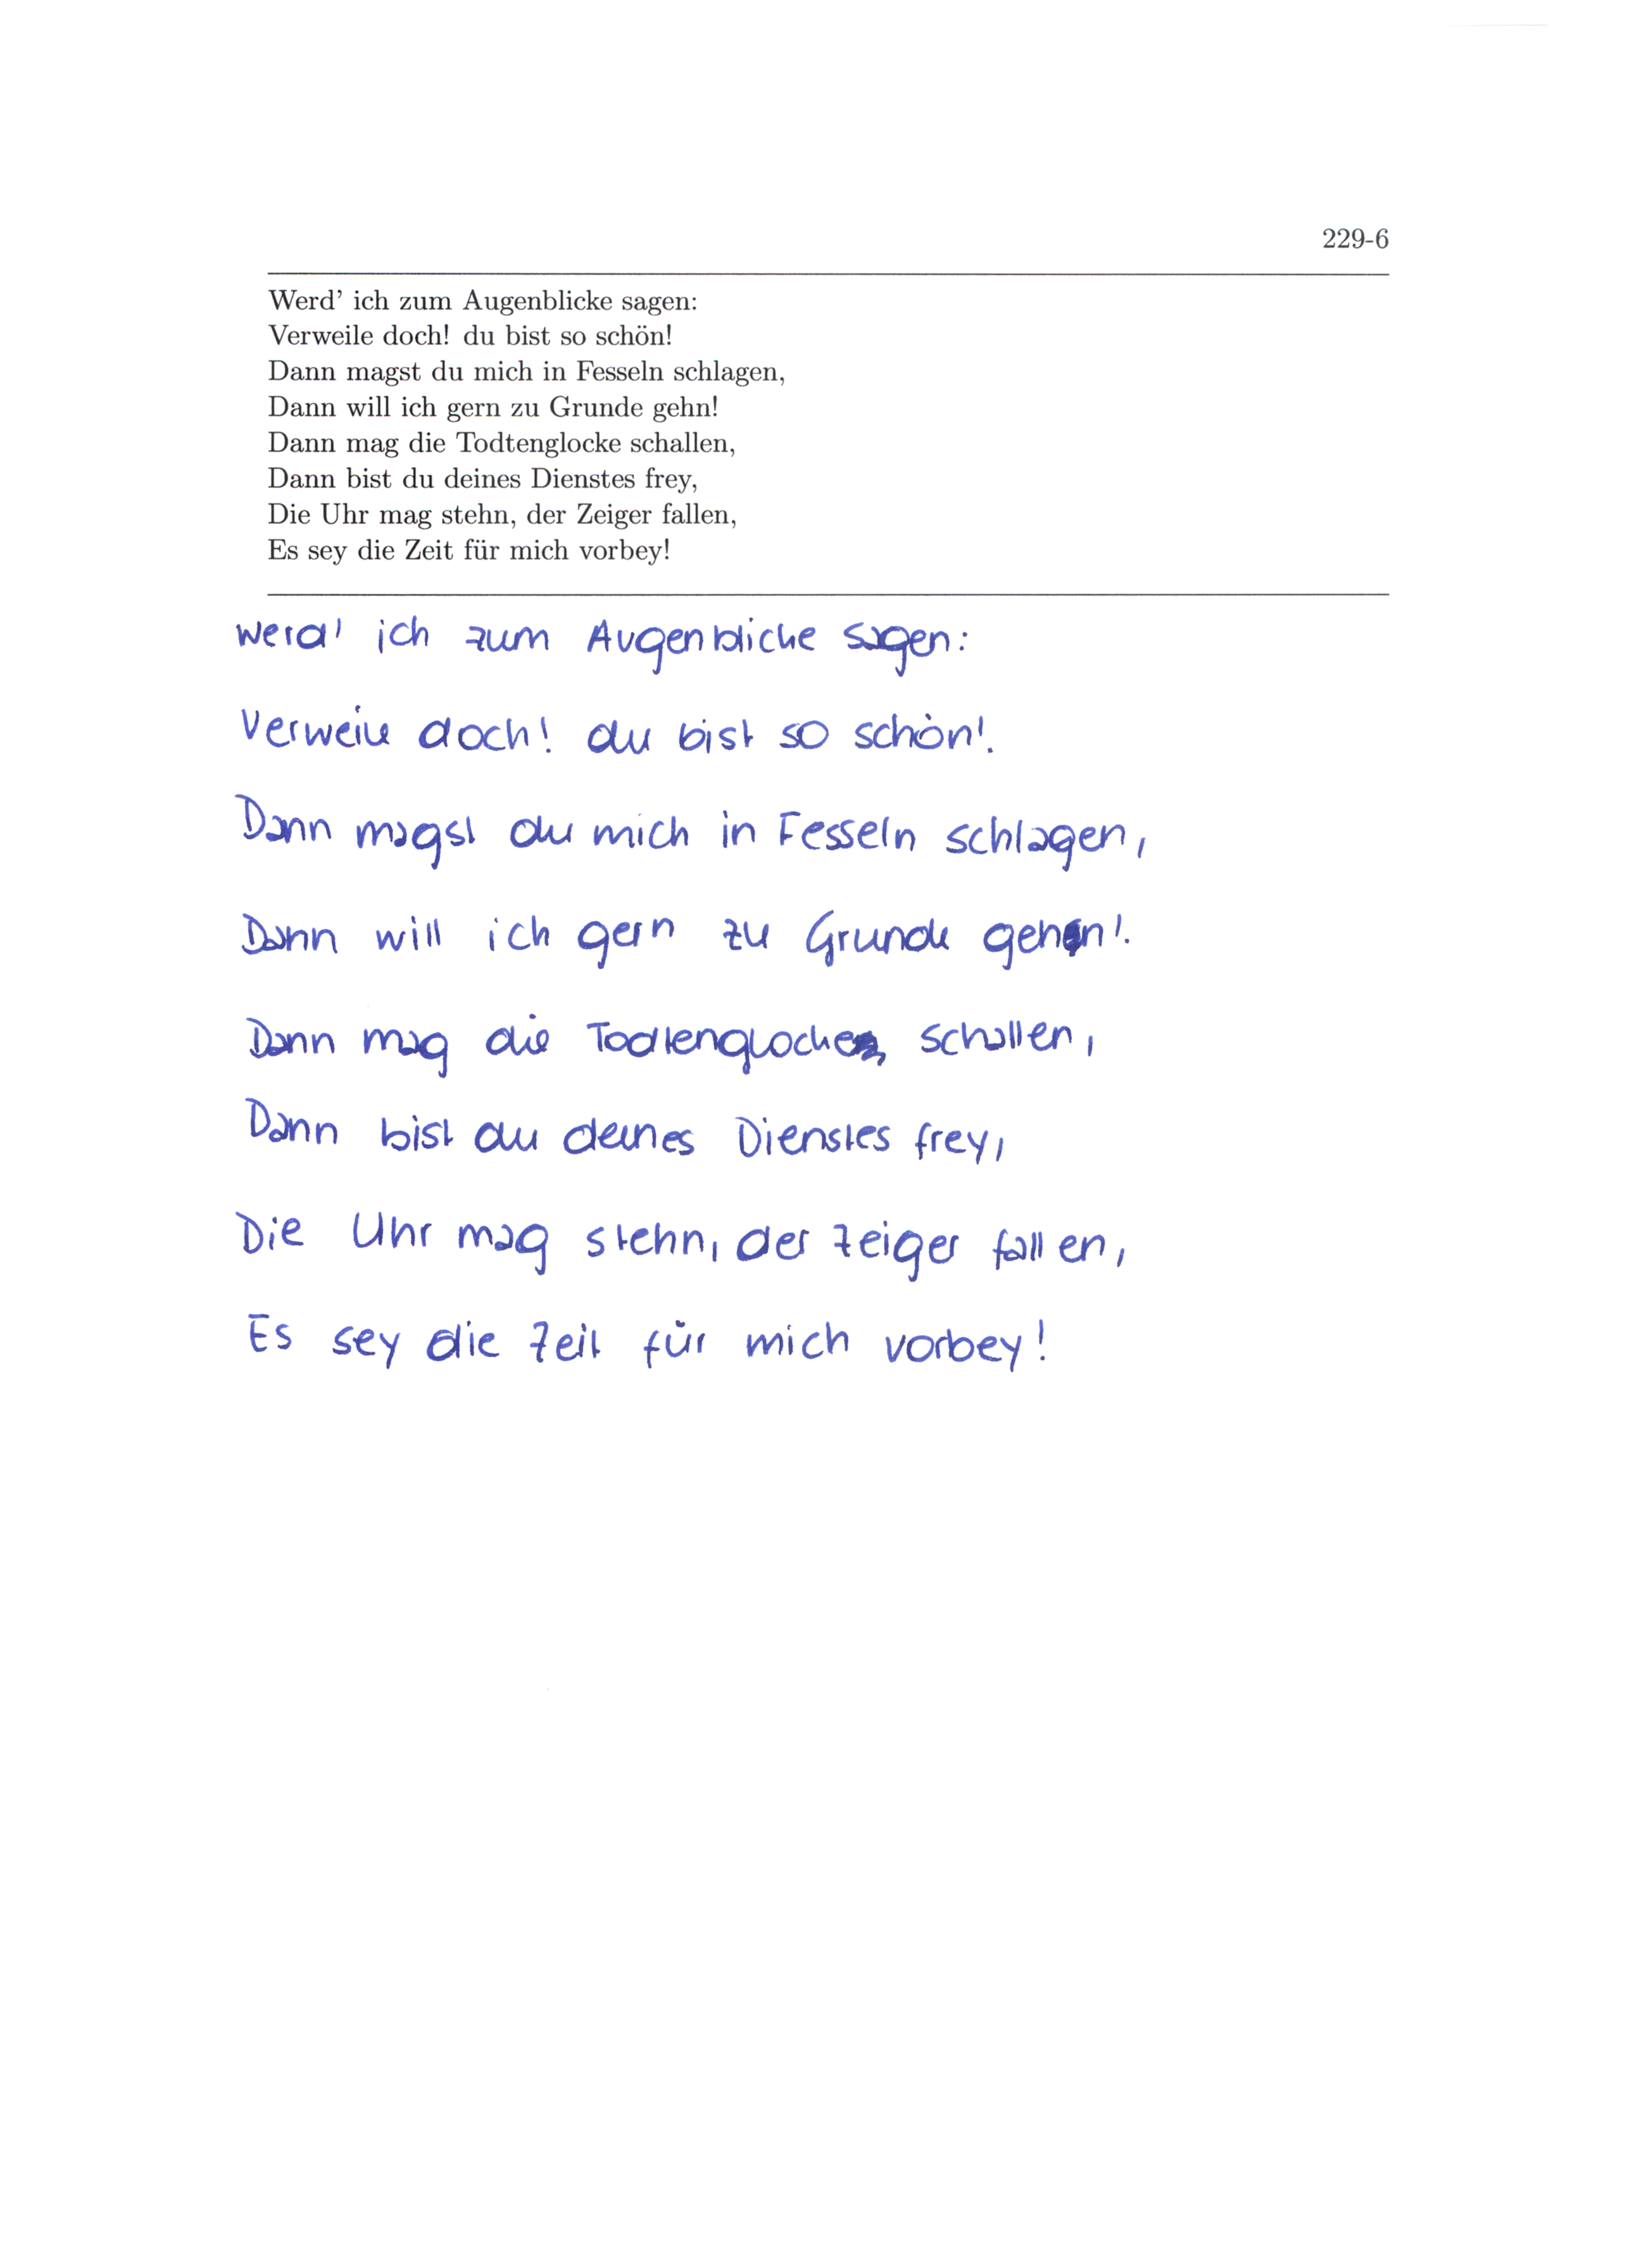 229-6
Werd' ich zum Augenblicke sagen:
Verweile doch! du bist so schön!
Dann magst du mich in Fesseln schlagen,
Dann will ich gern zu Grunde gehn!
Dann mag die Todtenglocke schallen,
Dann bist du deines Dienstes frey,
Die Uhr mag stehn, der Zeiger fallen,
Es sey die Zeit für mich vorbey!
Werd' ich zum Augenblicke sagen:
Verweile doch! du bist so schön!
Dann magst du mich in Fesseln schlagen,
Dann will ich gern zu Grunde gehn!
Dann mag die Todtenglocke schallen,
Dann bist du deines Dienstes frey,
Die Uhr mag stehn, der Zeiger fallen,
Es sey die Zeit für mich vorbey!